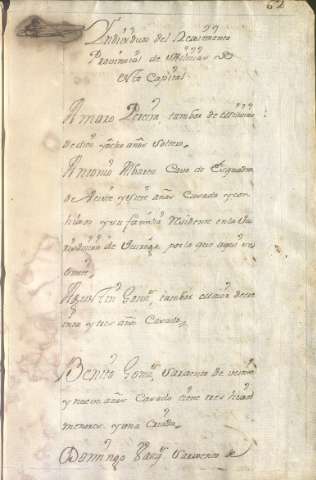 62
Individuos del Regimiento
Provincial de Milicias de
esta Capital
Amaro Pereira, tambor de
de diez y ocho años Soltero
Antonio Albares Cavo de Esquadra
de Veinte y siete años Casado y con
hixos y su familia Residente en la Ju
risdicion de por lo que aqui no
tiene
Agustin Gonz.z tambor de
y tres años Casado
Benito Gom.z Sargento de veinte
y nueve años Casado tiene tres hixos
menores y una Criada
Domingo Sargento de